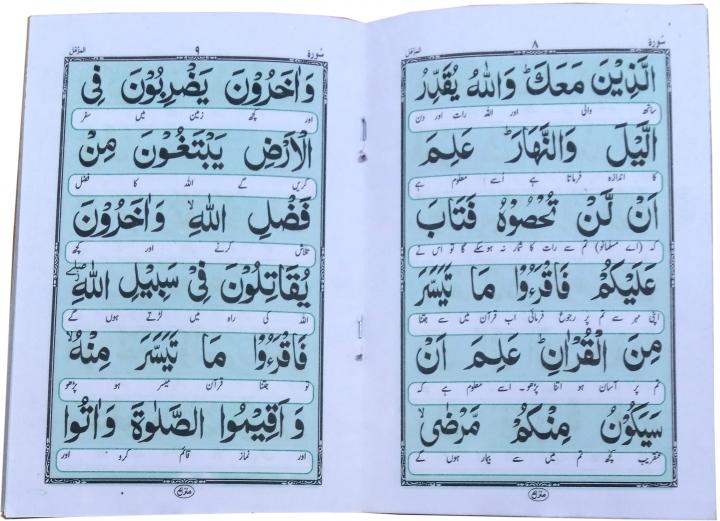 سُورَة ٨ المزمل
الَّذِيْنَ مَعَكَ ؕ وَاللّٰهُ يُقَدِّرُ
ساتھ والی اور اللہ رات اور دن
الَّيْلَ وَالنَّهَارَ ؕ عَلِمَ
کا اندازہ فرماتا ہے اُسے معلوم ہے
اَنْ لَّنْ تُحْصُوْهُ فَتَابَ
کہ (اے مسلمانو) تم سے رات کا شمار نہ ہوسکے گا تو اس نے
عَلَيْكُمْ فَاقْرَءُوْا مَا تَيَسَّرَ
اپنی مہر سے تم پر رجوع فرمائی اب قرآن میں سے جتنا
مِنَ الْقُرْاٰنِ ؕ عَلِمَ اَنْ
تم پر آسان ہو اتنا پڑھو۔ اسے معلوم ہے کہ
سَيَكُوْنُ مِنْكُمْ مَّرْضٰى ۙ
عنقریب کچھ تم میں سے بیمار ہوں گے
سُورَة ٩ المزمل
وَاٰخَرُوْنَ يَضْرِبُوْنَ فِى
اور کچھ زمین میں سفر
الْاَرْضِ يَبْتَغُوْنَ مِنْ
کریں گے اللہ کا فضل
فَضْلِ اللّٰهِ ۙ وَاٰخَرُوْنَ
تلاش کرنے اور کچھ
يُقَاتِلُوْنَ فِىْ سَبِيْلِ اللّٰهِ ۖ
اللہ کی راہ میں لڑتے ہوں گے
فَاقْرَءُوْا مَا تَيَسَّرَ مِنْهُ ۙ
تو جتنا قرآن میسر ہو پڑھو
وَاَقِيْمُوا الصَّلٰوةَ وَاٰتُوا
اور نماز قائم کرو اور